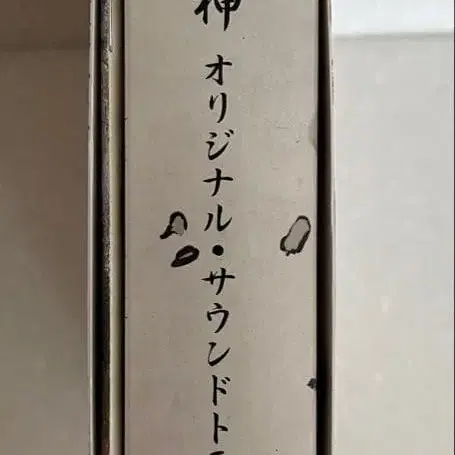 神 オリジナル・サウンドト